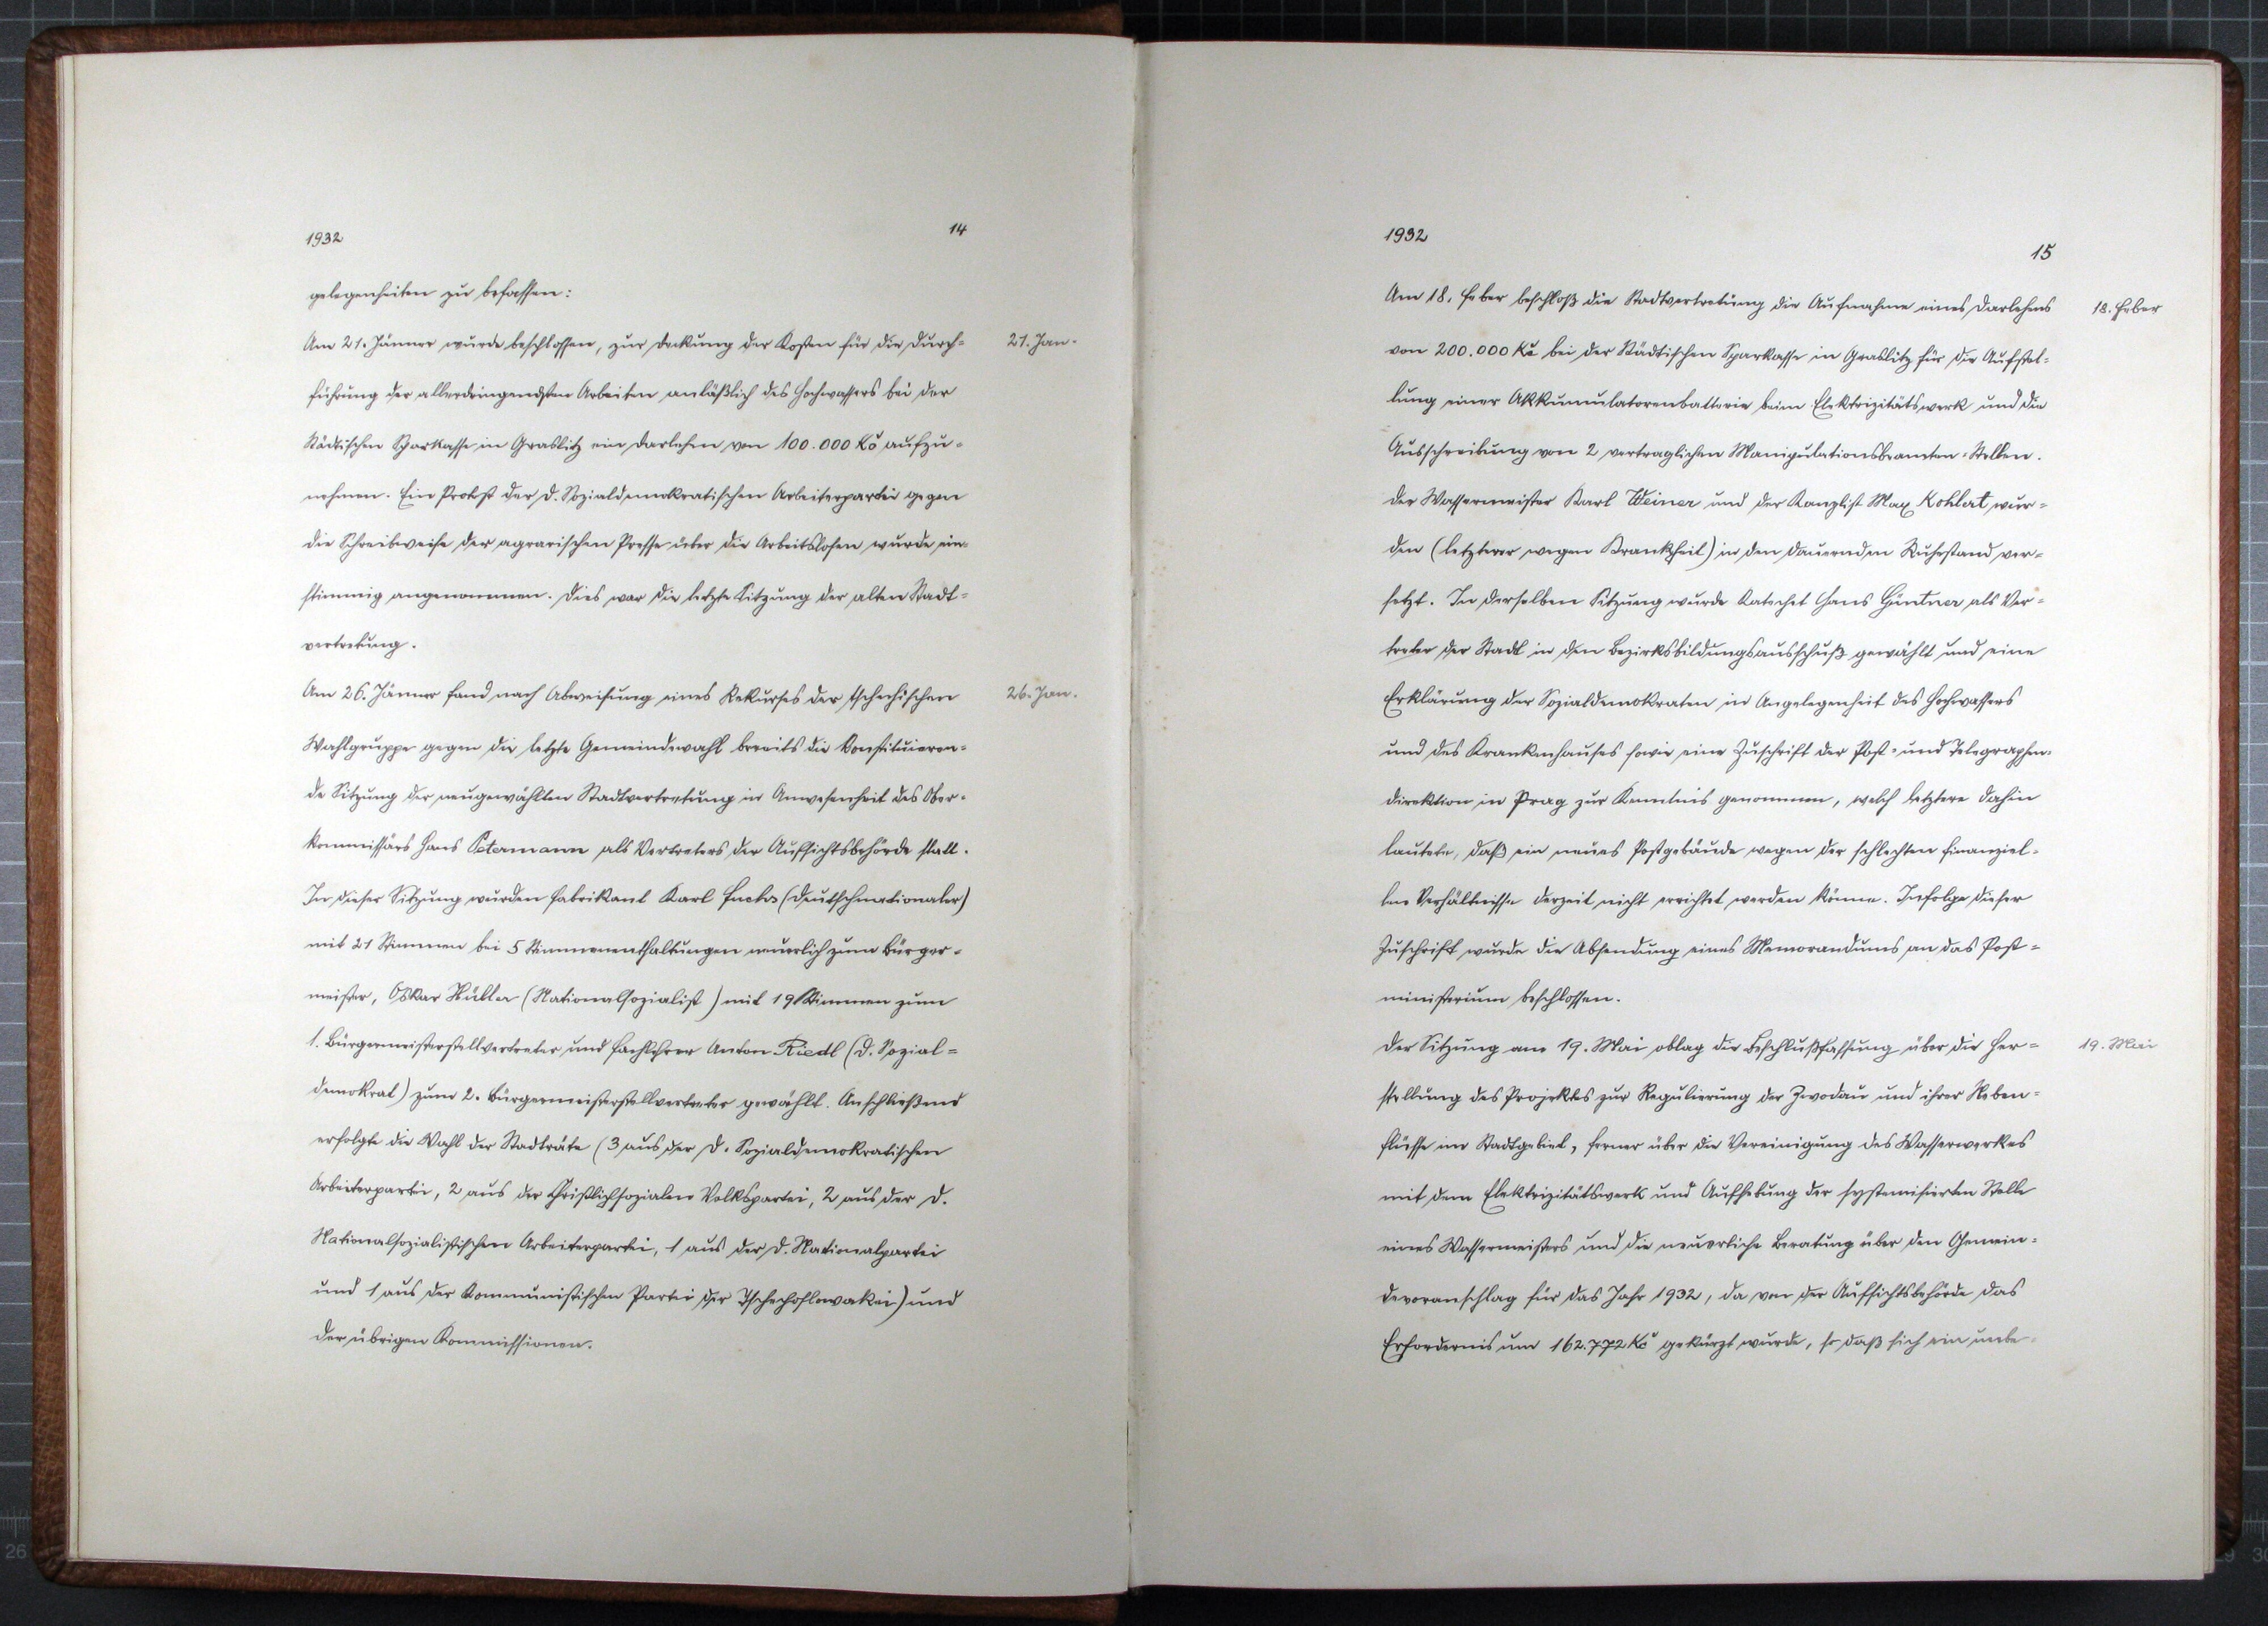 1932
14
gelegenheiten zu befassen:
Am 21. Jänner wurde beschlossen, zur Deckung der Kosten für die Durch=
21. Jan.
führung der allerdringendsten Arbeiten anläßlich des Hochwassers bei der
Städtischen Sparkasse in Graslitz ein Darlehen von 100.000 Kč aufzu=
nehmen. Ein Protest der D. Sozialdemokratischen Arbeiterpartei gegen
die Schreibweise der agrarischen Presse über die Arbeitslosen wurde ein=
stimmig angenommen. Dies war die letzte Sitzung der alten Stadt=
vertretung.
Am 26. Jänner fand nach Abweisung eines Rekurses der tschechischen
26. Jan.
Wahlgruppe gegen die letzte Gemeindewahl bereits die konstituieren=
de Sitzung der neugewählten Stadtvertretung in Anwesenheit des Ober=
kommissärs Hans Petermann als Vertreters der Aufsichtsbehörde statt.
In dieser Sitzung wurden Fabrikant Karl Fuchs (Deutschnationaler)
mit 21 Stimmen bei 5 Stimmenenthaltungen neuerlich zum Bürger=
meister, Oskar Müller (Nationalsozialist) mit 19 Stimmen zum
1. Bürgermeisterstellvertreter und Fachlehrer Anton Riedl (D. Sozial=
demokrat) zum 2. Bürgermeisterstellvertreter gewählt. Anschließend
erfolgte die Wahl der Stadträte (3 aus der D. Sozialdemokratischen
Arbeiterpartei, 2 aus der Christlichsozialen Volkspartei, 2 aus der D.
Nationalsozialistischen Arbeiterpartei, 1 aus der D. Nationalpartei
und 1 aus der Kommunistischen Partei der Tschechoslowakei) und
der übrigen Kommissionen.
1932
15
Am 18. Feber beschloß die Stadtvertretung die Aufnahme eines Darlehens
18. Feber
von 200.000 Kč bei der Städtischen Sparkasse in Graslitz für die Aufstel=
lung einer Akkumulatorenbatterie beim Elektrizitätswerk und die
Ausschreibung von 2 vertraglichen Manipulationsbeamten=Stellen.
Der Wassermeister Karl Weiner und der Kanzlist Max Kohlert wur=
den (letzterer wegen Krankheit) in den dauernden Ruhestand ver=
setzt. In derselben Sitzung wurde Katechet Hans Güntner als Ver=
treter der Stadt in den Bezirksbildungsausschuß gewählt und eine
Erklärung der Sozialdemokraten in Angelegenheit des Hochwassers
und des Krankenhauses sowie eine Zuschrift der Post= und Telegraphen=
direktion in Prag zur Kenntnis genommen, welch letztere dahin
lautete, daß ein neues Postgebäude wegen der schlechten finanziel=
len Verhältnisse derzeit nicht errichtet werden könne. Infolge dieser
Zuschrift wurde die Absendung eines Memorandums an das Post=
ministerium beschlossen.
Der Sitzung am 19. Mai oblag die Beschlußfassung über die Her=
19. Mai
stellung des Projektes zur Regulierung der Zwodau und ihrer Neben=
flüsse im Stadtgebiet, ferner über die Vereinigung des Wasserwerkes
mit dem Elektrizitätswerk und Aufhebung der systemisierten Stelle
eines Wassermeisters und die neuerliche Beratung über den Gemein=
devoranschlag für das Jahr 1932, da von der Aufsichtsbehörde das
Erfordernis um 162.772 Kč gekürzt wurde, so daß sich ein unbe=
26
30